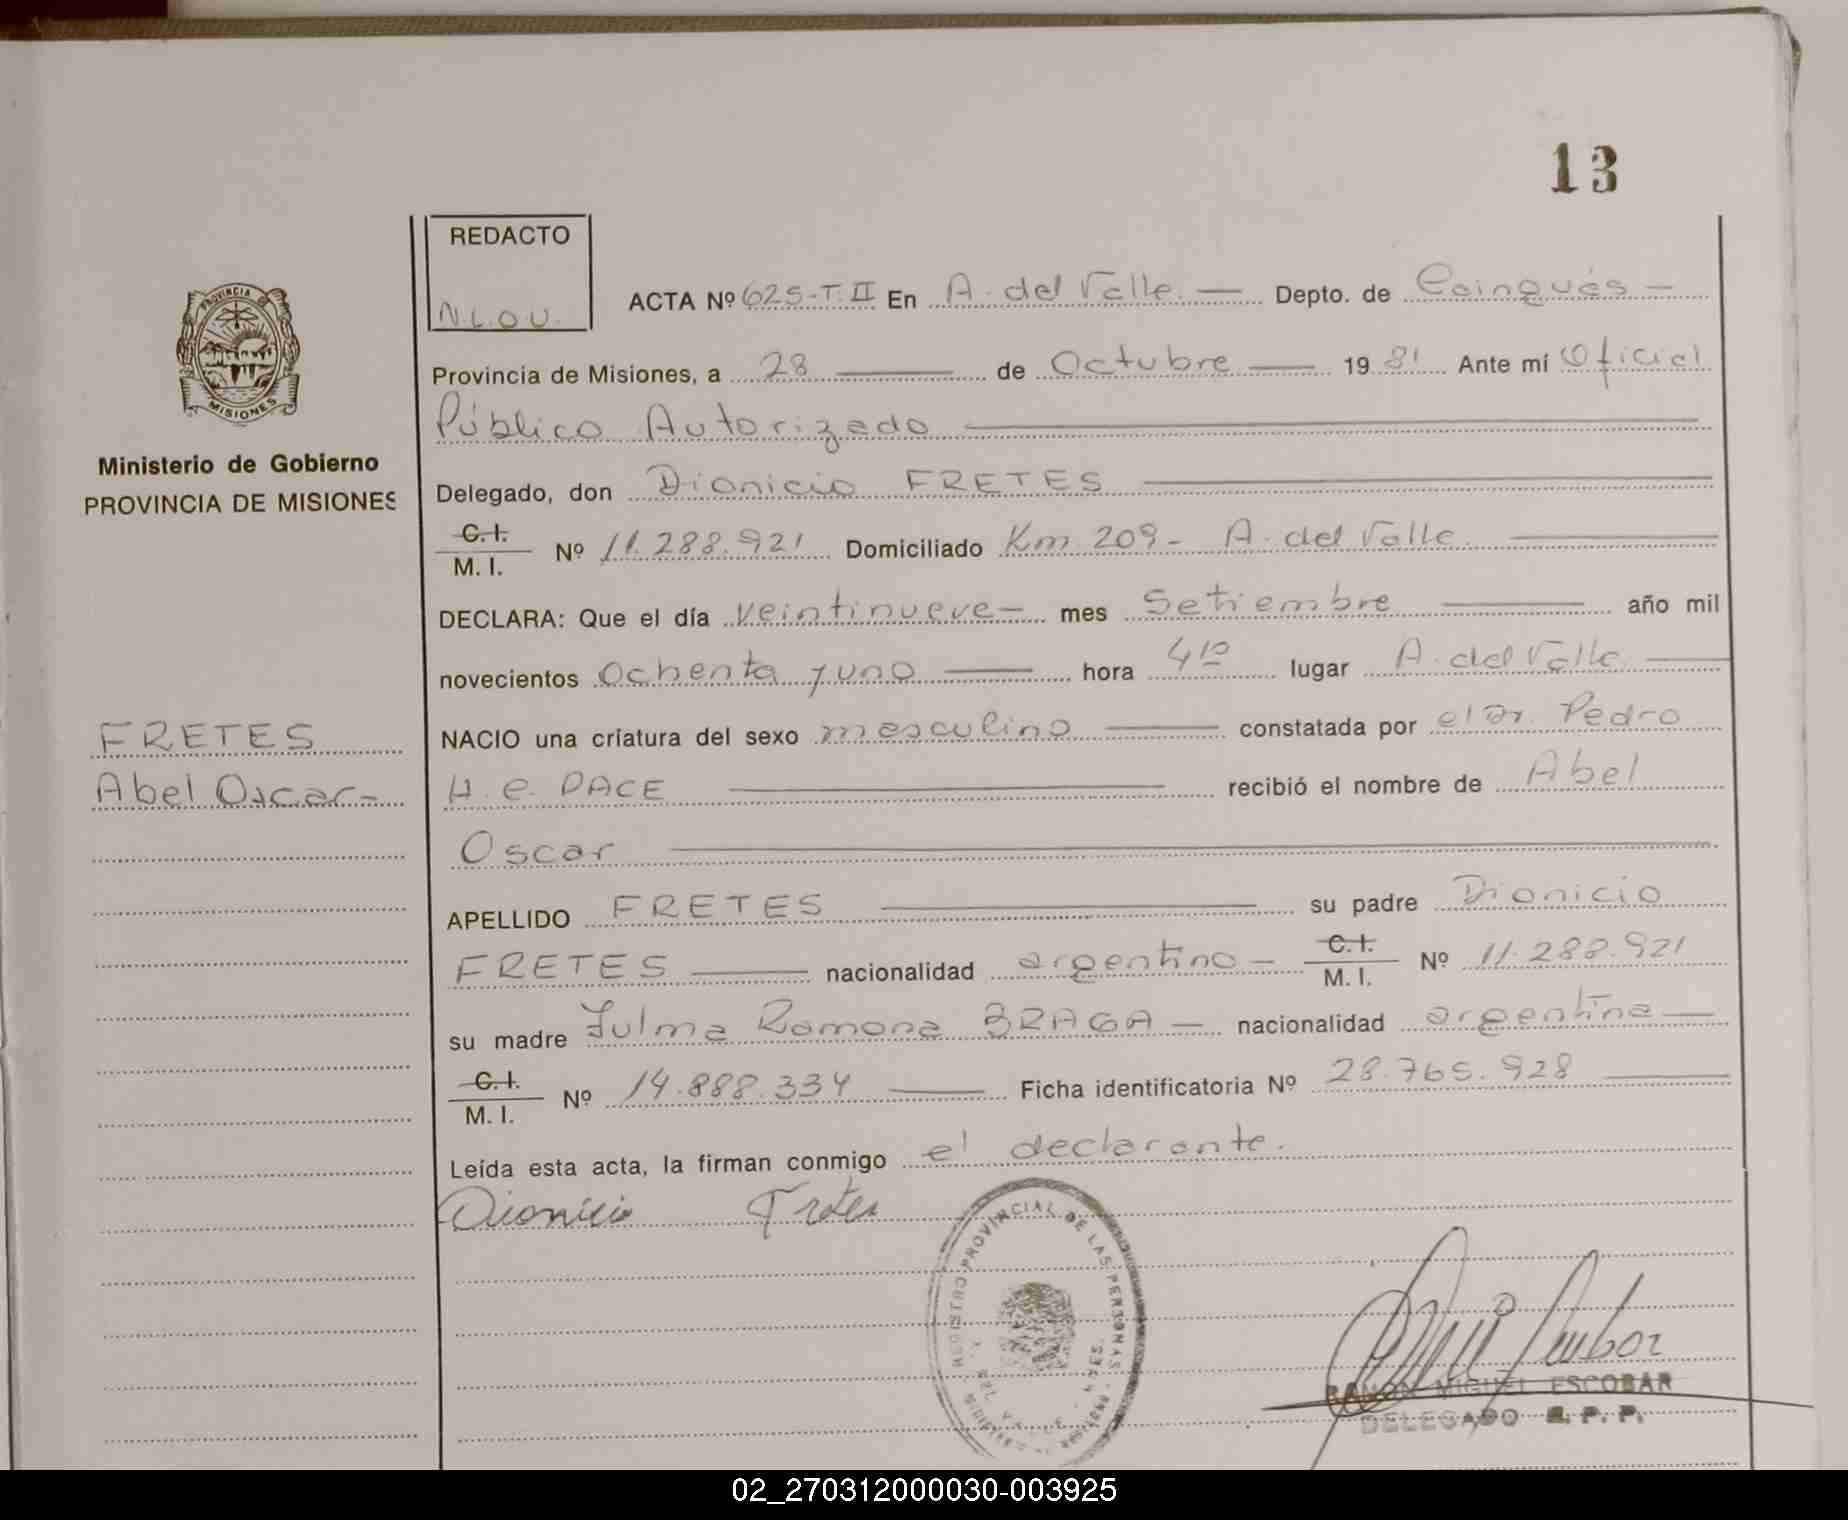 13
REDACTO
N.L.O.U.
ACTA Nº 625-T.II En A. del Valle. — Depto. de Cainguás —
PROVINCIA
MISIONES
Provincia de Misiones, a 28 — de Octubre — 19 81 Ante mí Oficial
Público Autorizado —
Ministerio de Gobierno
PROVINCIA DE MISIONES
Delegado, don Dionicio FRETES —
C.I. M.I. Nº 11.288.921 Domiciliado Km 209 - A. del Valle. —
DECLARA: Que el día veintinueve — mes Setiembre — año mil
novecientos ochenta y uno — hora 4 10 lugar A. del Valle. —
FRETES
Abel Oscar -
NACIO una criatura del sexo masculino — constatada por el Dr. Pedro
H. C. PACE — recibió el nombre de Abel
Oscar —
APELLIDO FRETES — su padre Dionicio
FRETES — nacionalidad argentino - C.I. M.I. Nº 11.288.921
su madre Zulma Ramona BRAGA — nacionalidad argentina —
C.I. M.I. Nº 14.888.334 — Ficha identificatoria Nº 28.765.928 —
Leída esta acta, la firman conmigo el declarante.
Dionicio Fretes
REGISTRO PROVINCIAL DE LAS PERSONAS
RAMON MIGUEL ESCOBAR
DELEGADO R. P. P.
02_270312000030-003925